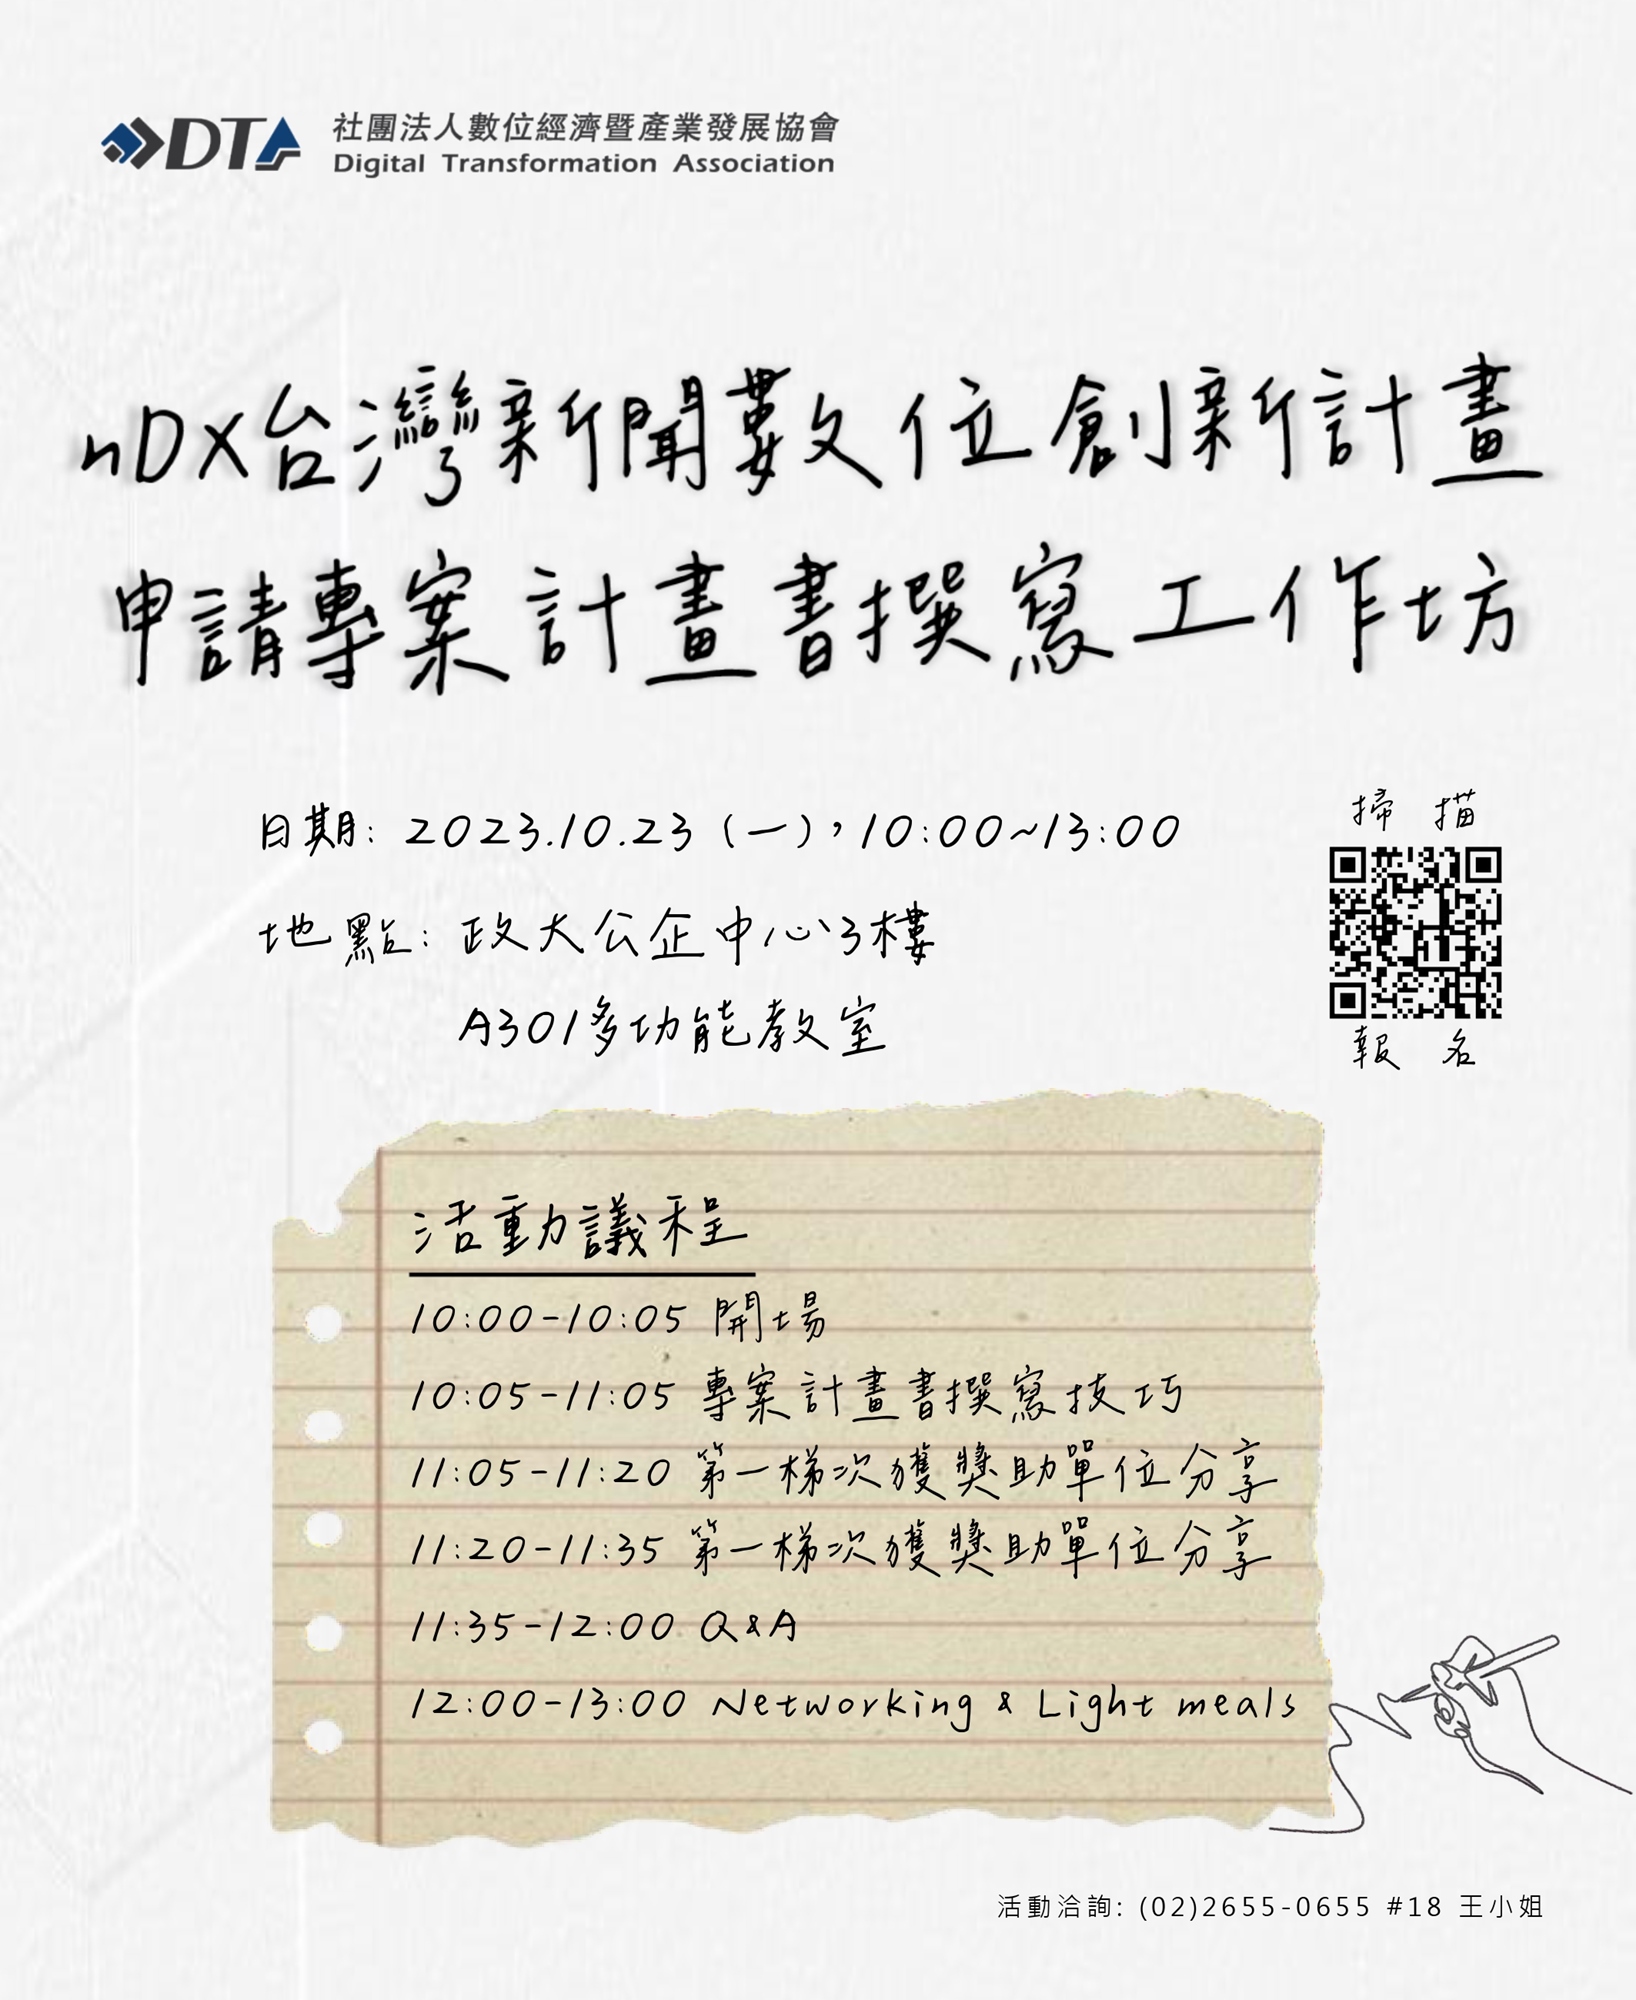 DTA 社團法人數位經濟暨產業發展協會
Digital Transformation Association
nDX台灣新聞數位創新計畫
申請專案計畫書撰寫工作坊
日期: 2023.10.23 (一), 10:00~13:00
地點: 政大公企中心3樓
A301多功能教室
掃描
報名
活動議程
10:00-10:05 開場
10:05-11:05 專案計畫書撰寫技巧
11:05-11:20 第一梯次獲獎助單位分享
11:20-11:35 第一梯次獲獎助單位分享
11:35-12:00 Q&A
12:00-13:00 Networking & Light meals
活動洽詢: (02)2655-0655 #18 王小姐